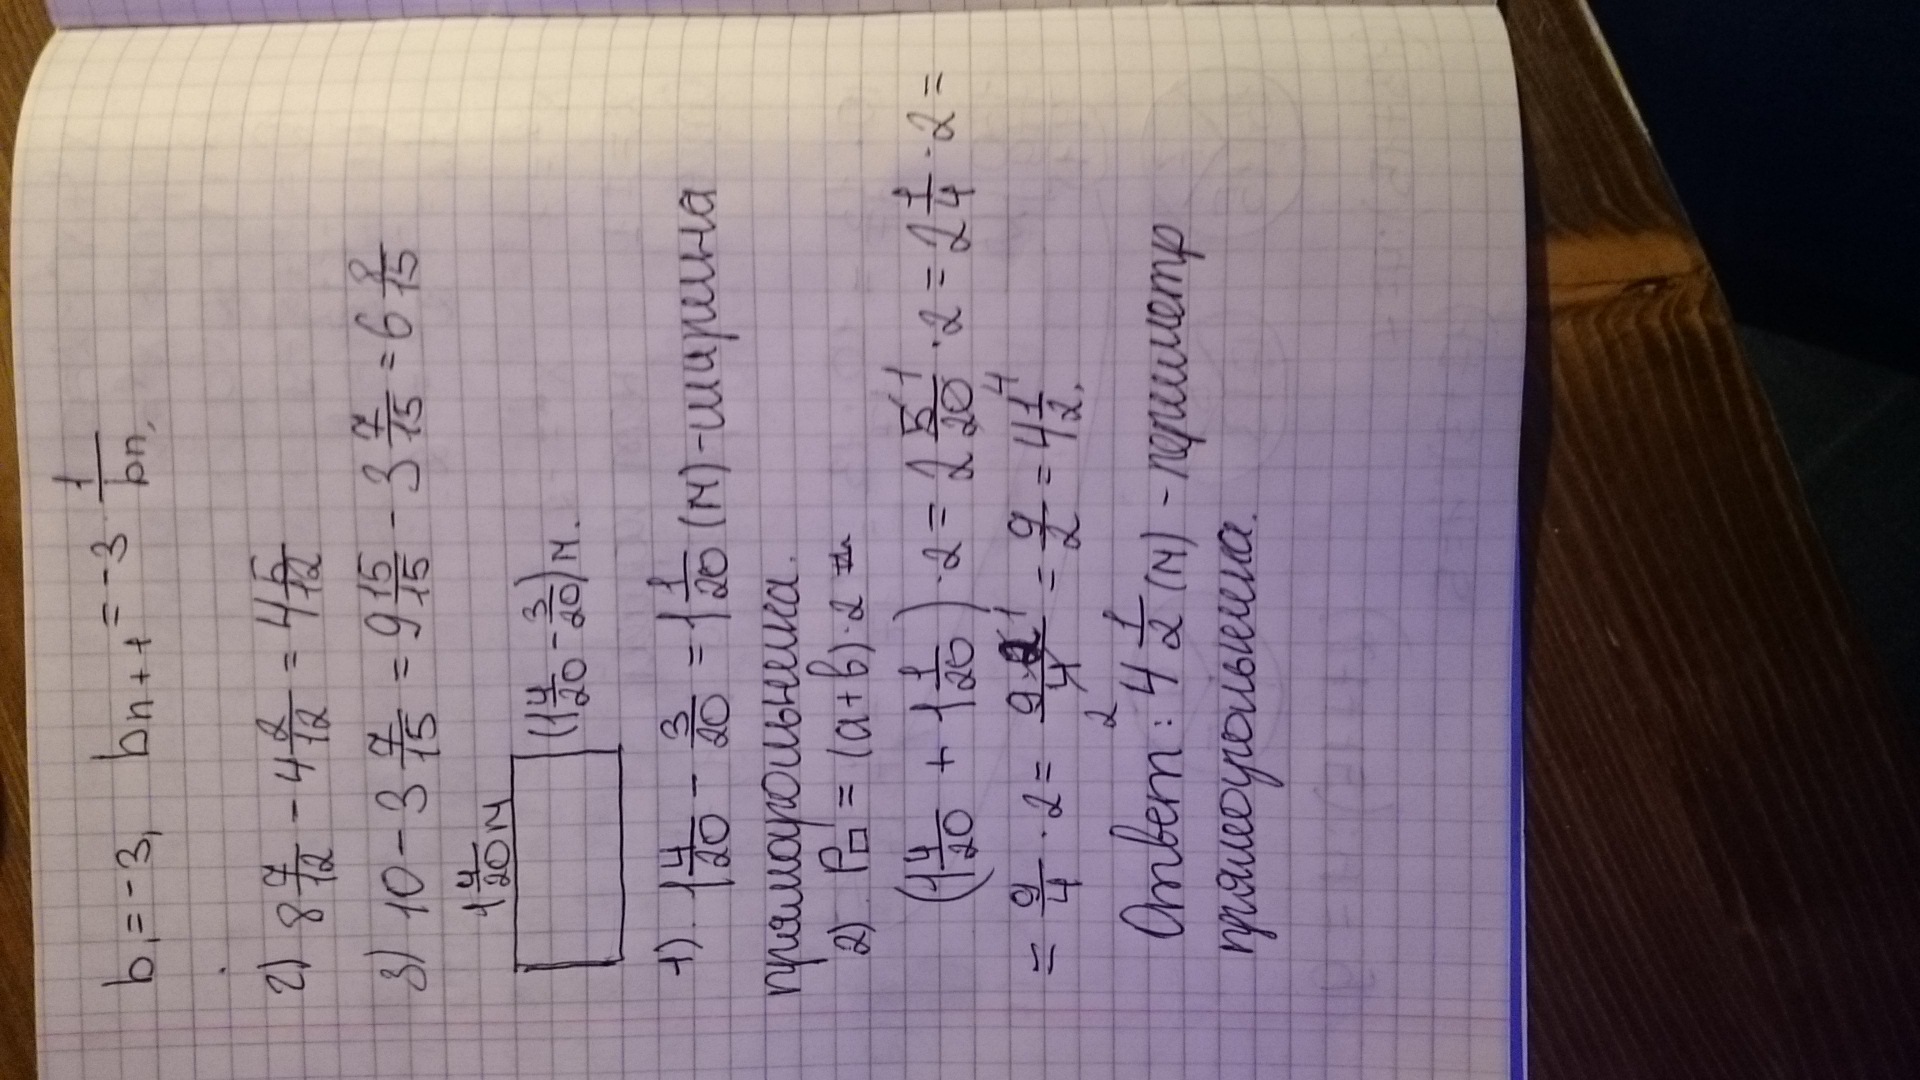 b₁ = -3, bn+1 = -3 · 1/bn,
2) 8 7/12 - 4 2/12 = 4 5/12
3) 10 - 3 7/15 = 9 15/15 - 3 7/15 = 6 8/15
1 4/20 м
(1 4/20 - 3/20) м.
1). 1 4/20 - 3/20 = 1 1/20 (м) - ширина
прямоугольника.
2). P▭ = (a+b)·2
(1 4/20 + 1 1/20)·2 = 2 5/20 ·2 = 2 1/4 ·2 =
= 9/4 ·2 = 9·2/4 = 9/2 = 4 1/2,
Ответ: 4 1/2 (м) - периметр
прямоугольника.